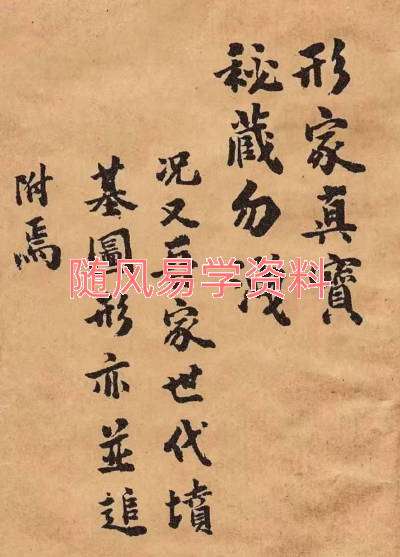 形家真寶
秘藏勿洩
况又吾家世代墳
墓圖形亦並追
附焉
随风易学资料